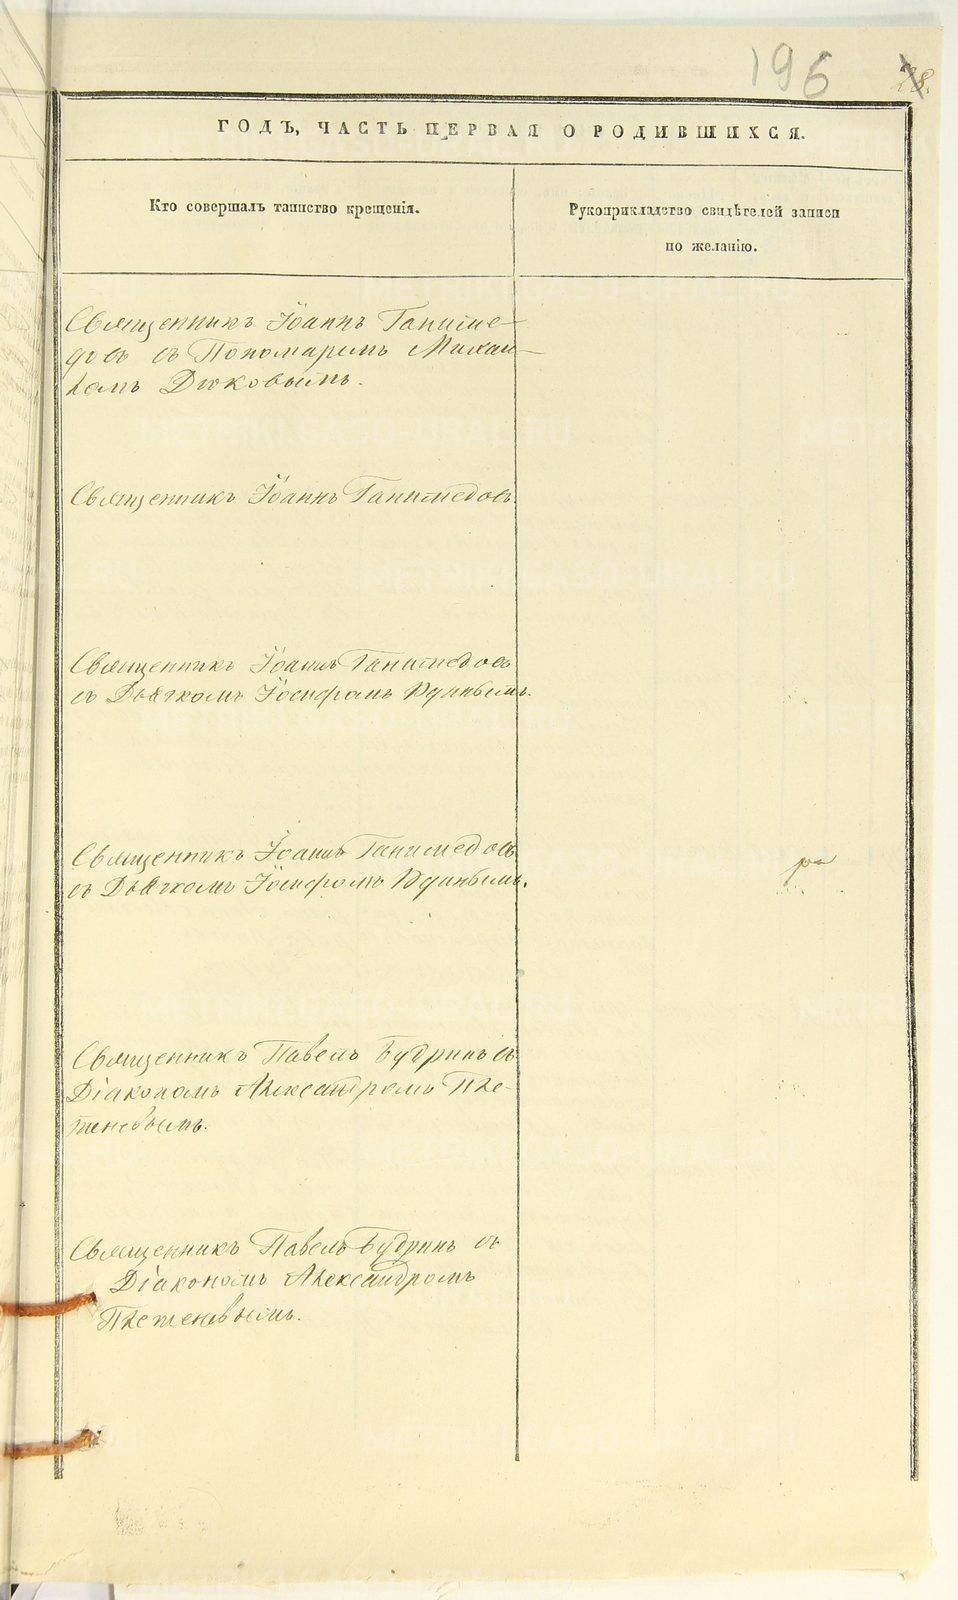 196
28.
ГОДЪ, ЧАСТЬ ПЕРВАЯ О РОДИВШИХСЯ.
Кто совершалъ таинство крещенія.
Рукоприкладство свидѣтелей записи
по желанію.
Священникъ Іоаннъ Ганиме-
довъ съ Пономаремъ Михаи-
ломъ Дюковымъ.
Священникъ Іоаннъ Ганимедовъ.
Священникъ Іоаннъ Ганимедовъ
съ Дьячкомъ Іосифомъ
Священникъ Іоаннъ Ганимедовъ
съ Дьячкомъ Іосифомъ
Священникъ Павелъ Будринъ съ
Діакономъ Александромъ Пле-
теневымъ.
Священникъ Павелъ Будринъ съ
Діакономъ Александромъ
Плетеневымъ.
METRIKI.GASO-URAL.RU